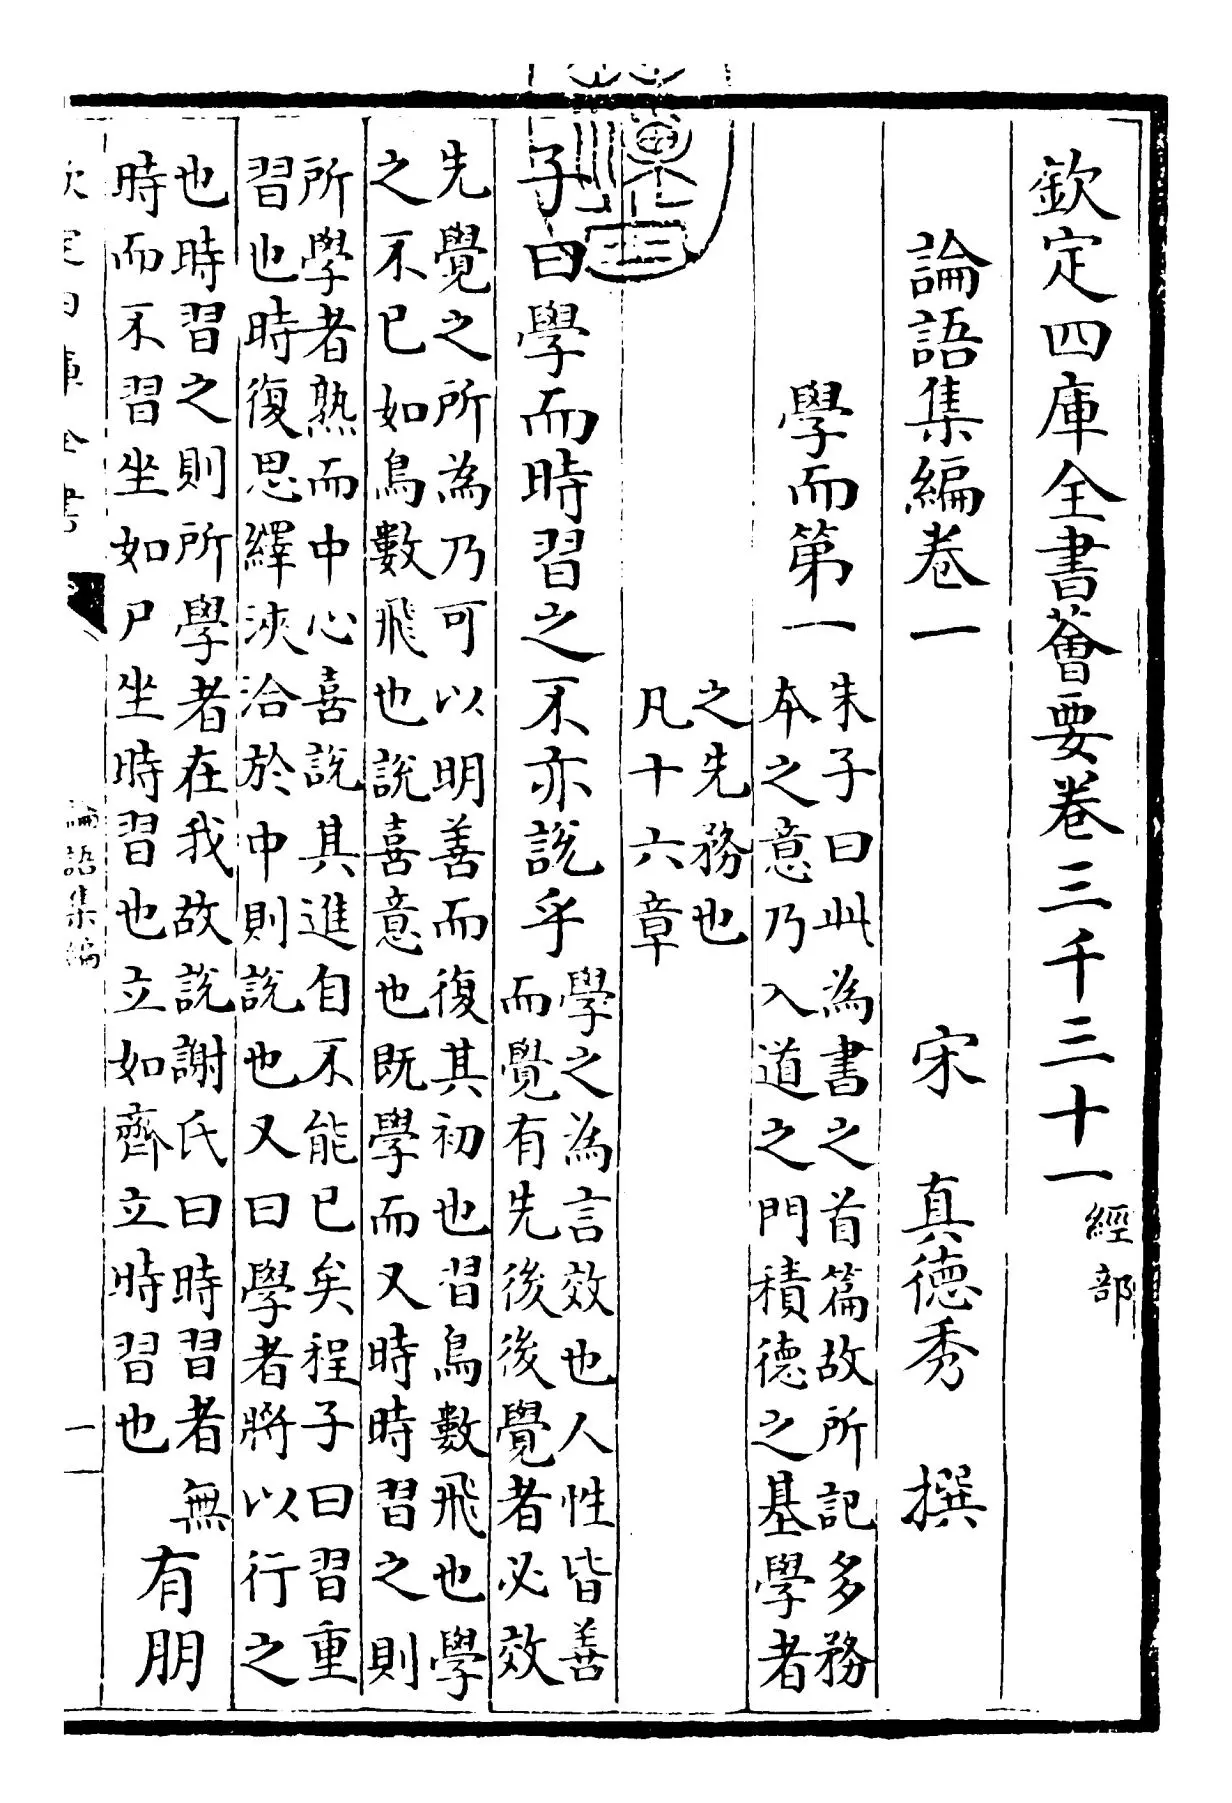 欽定四庫全書薈要卷三千三十一 經部
論語集編卷一 宋 真德秀 撰
學而第一
朱子曰此為書之首篇故所記多務
本之意乃入道之門積德之基學者
之先務也
凡十六章
子曰學而時習之不亦説乎
學之為言效也人性皆善
而覺有先後後覺者必效
先覺之所為乃可以明善而復其初也習鳥數飛也學
之不已如鳥數飛也説喜意也既學而又時時習之則
所學者熟而中心喜説其進自不能已矣程子曰習重
習也時復思繹浹洽於中則説也又曰學者將以行之
也時習之則所學者在我故説謝氏曰時習者無
時而不習坐如尸坐時習也立如齊立時習也
有朋
欽定四庫全書
論語集編
一